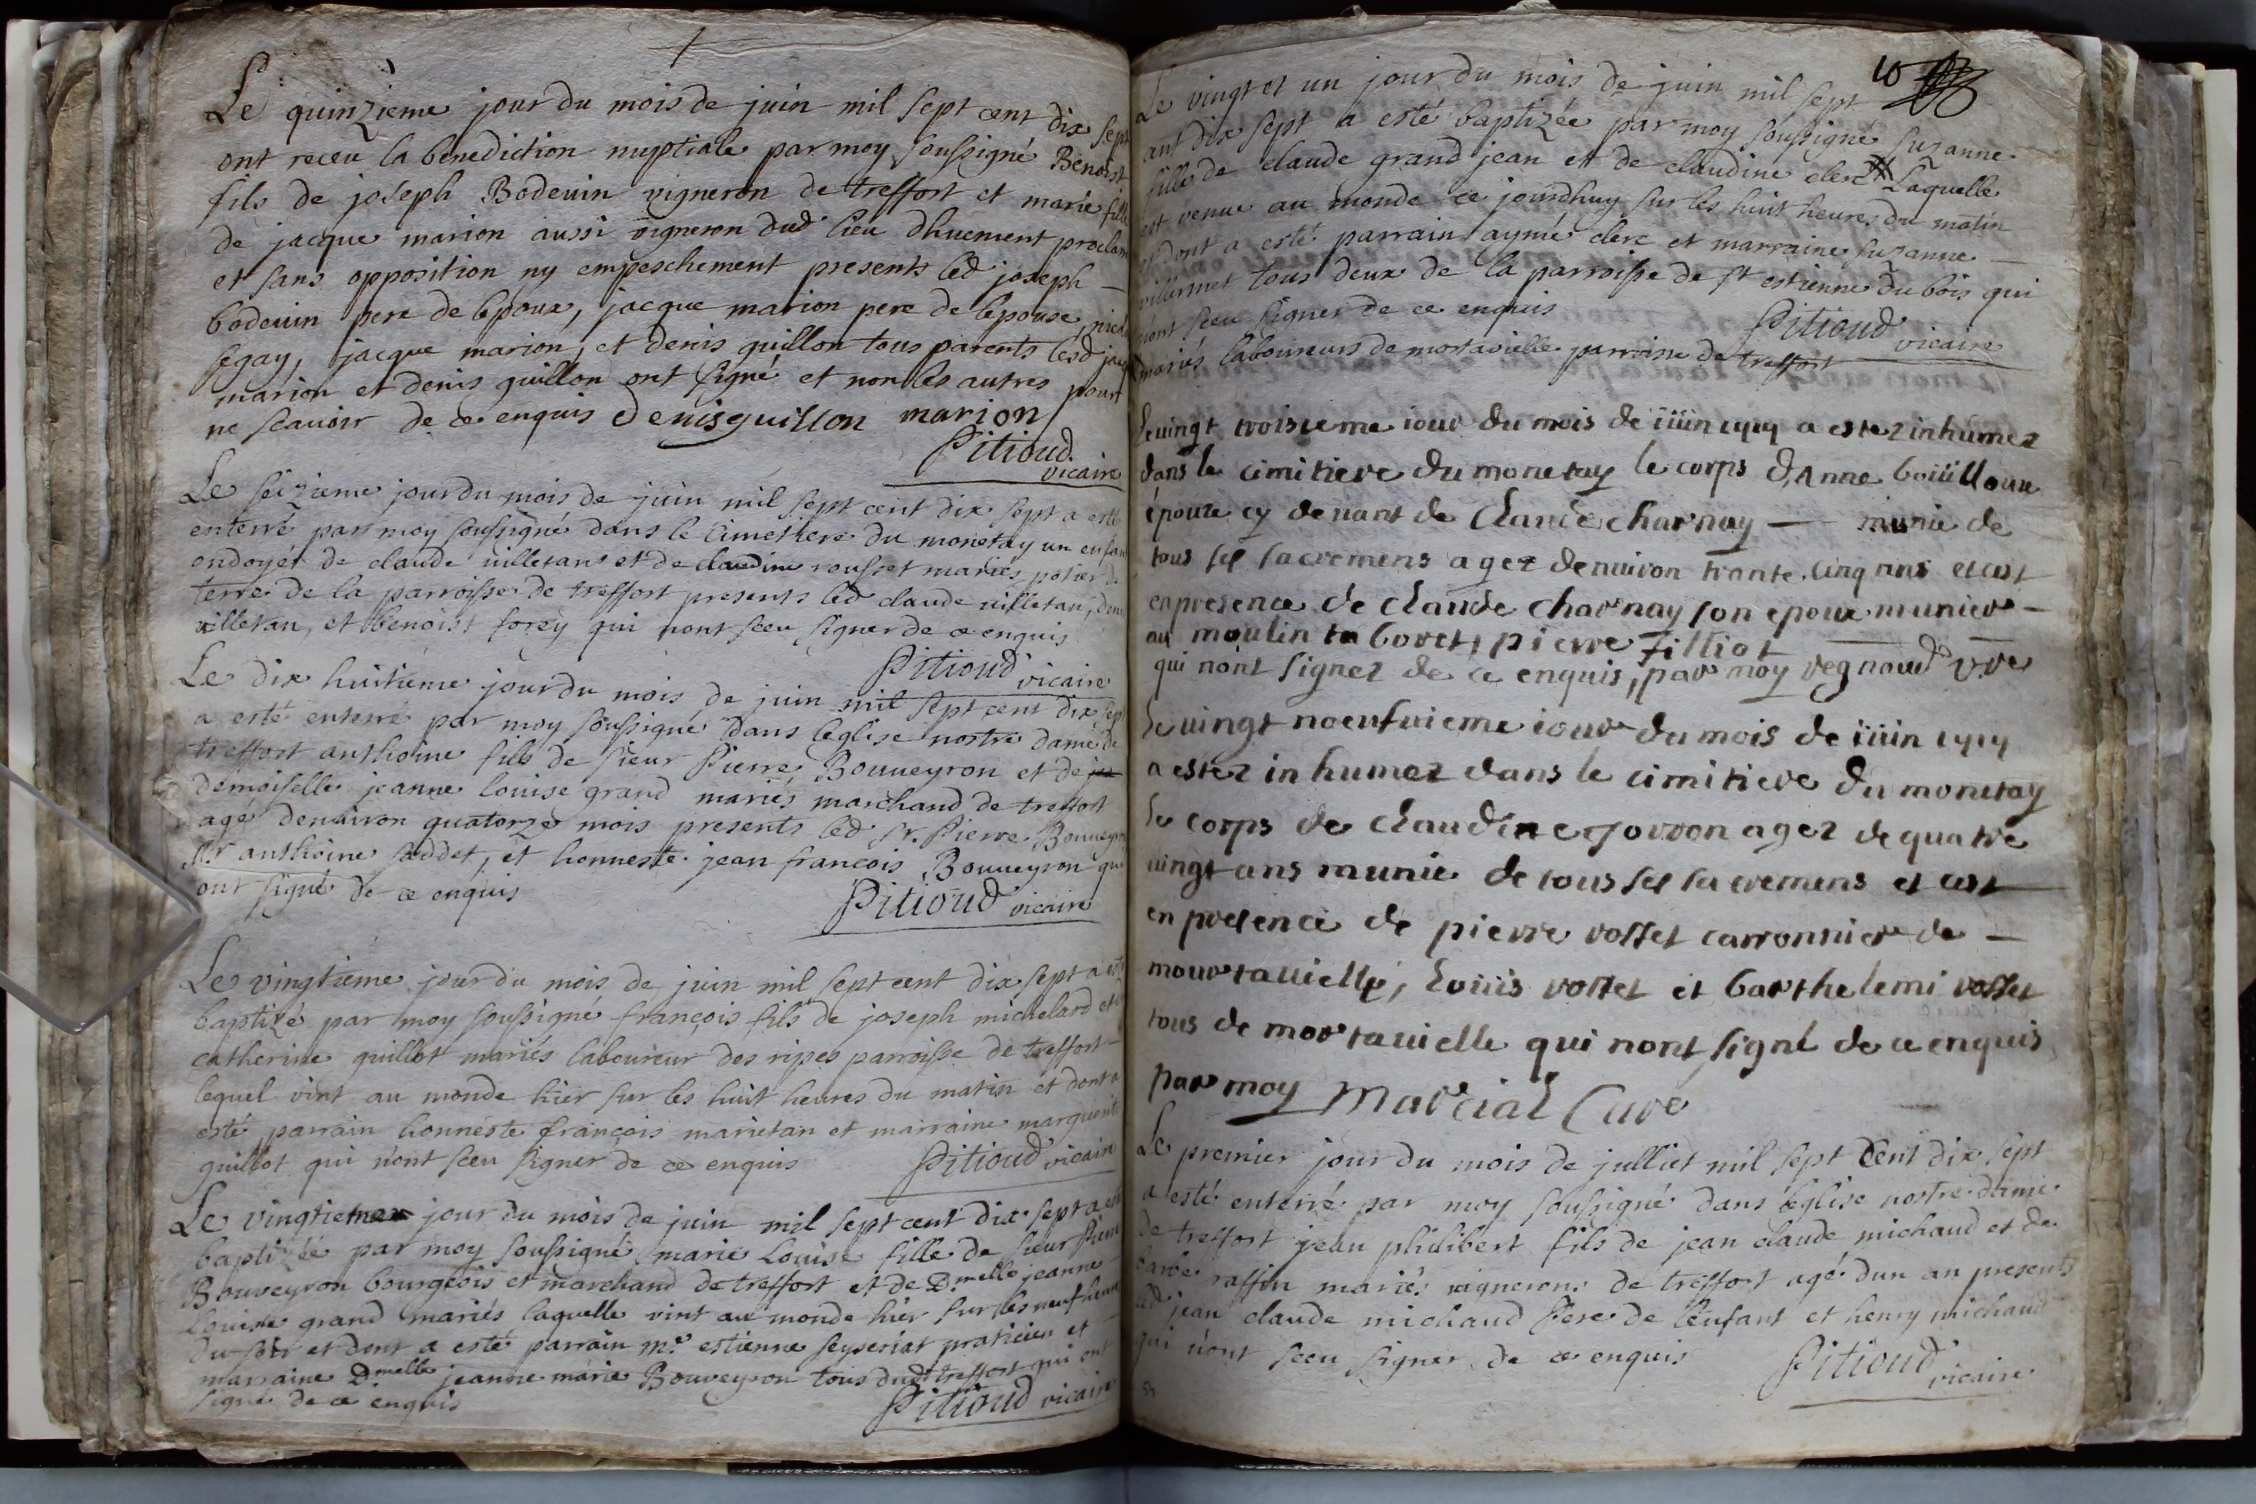 Le quinzieme jour du mois de juin mil sept cent dix sept
ont receu la benediction nuptiale par moy soussigné Benoist
fils de joseph Bodevin vigneron de treffort et marie fille
de jacque marion aussi vigneron dud lieu dhuement proclam
et sans opposition ny empeschement presents led joseph –
bodevin pere de lepoux, jacque marion pere de lepouse,
segay, jacque marion, et denis guillon tous parents lesd
marion et denis guillon ont signé et non les autres pour
ne scavoir de ce enquis Denisguillon marion
Pitioud
vicaire
Le seizieme jour du mois de juin mil sept cent dix sept a esté
enterré par moy soussigné dans le cimetiere du monetay un enfan
ondoyér de claude villetan et de claudine rousset mariés potier de
terre de la parroisse de treffort presents led claude villetan,
villetan, et benoist forey qui nont sceu signer de ce enquis
Pitioud vicaire
Le dix huitieme jour du mois de juin mil sept cent dix sept
a esté enterré par moy soussigné dans leglise nostre dame de
treffort anthoine fils de sieur Pierre Bouveyron et de
demoiselle jeanne louise grand mariés marchand de treffort
agé denviron quatorze mois presents led Sr. Pierre Bouveyron
Sr anthoine soddet, et honneste jean francois Bouveyron qui
ont signé de ce enquis
Pitioud vicaire
Le vingtieme jour du mois de juin mil sept cent dix sept a esté
baptizé par moy soussigné françois fils de joseph michelard et de
catherine guillot mariés laboureur des ripes parroisse de treffort
lequel vint au monde hier sur les huit heures du matin et dont a
esté parrain honneste françois marietan et marraine marguerite
guillot qui n'ont sceu signer de ce enquis
Pitioud vicaire
Le vingtieme jour du mois de juin mil sept cent dix sept a esté
baptizée par moy soussigné marie Louise fille de sieur Pierre
Bouveyron bourgeois et marchand de treffort et de Dmelle jeanne
Louise grand mariés laquelle vint au monde hier sur les neuf heures
du soir et dont a esté parrain me estienne seyseriat praticien et –
marraine Dmelle jeanne marie Bouveyron tous dudt treffort qui ont
signé de ce enquis
Pitioud vicaire
10
Le vingt et un jour du mois de juin mil sept
cent dix sept a esté baptizée par moy soussigné suzanne
fille de claude grand jean et de claudine clerc laquelle
est venue au monde ce jourdhuy sur les huit heures du matin
et dont a esté parrain aymé clerc et marraine suzanne –
villermet tous deux de la parroisse de st estienne du bois qui
n'ont sceu signer de ce enquis
Pitioud
vicaire
mariés laboureurs de mortavielle parroisse de treffort
le vingt troisieme iour du mois de iüin 1717 a estez inhumez
dans le cimitiere du monetay le corps d'Anne boüilloux
épouze cy devant de Claude charnay — munie de
tous ses sacremens agez denuiron trante cinq ans et cest
en presence de claude charnay son epoux munier –
au moulin taboret, pierre filliot
qui nont signez de ce enquis, par moy regnaud vre
le vingt noeufuieme iour du mois de iüin 1717
a estez in humez dans le cimitiere du monetay
le corps de claudine gorron agez de quatre
vingt ans munie de tous ses sacremens et cest
en presence de pierre rosset carronnier de –
mourtauielle, Loüis rosset et barthelemi rosset
tous de mortauielle qui nont signé de ce enquis
par moy Marcial Curé
Le premier jour du mois de julliet mil sept Cent dix sept
a esté enterré par moy soussigné dans leglise nostre dame
de treffort jean philibert fils de jean claude michaud et de
barbe raffin mariés vignerons de treffort agé dun an presents
led jean claude michaud Pere de lenfant et henry michaud
qui n'ont sceu signer de ce enquis
Pitioud
vicaire